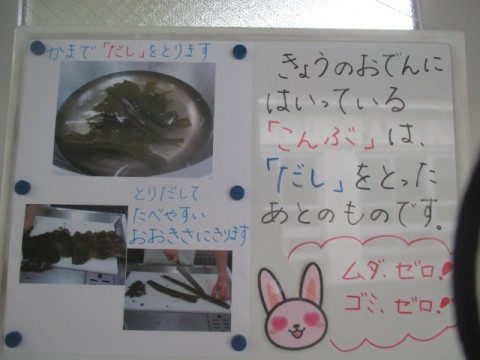 かまで「だし」をとります
とりだして
たべやすい
おおきさにきります
きょうのおでんに
はいっている
「こんぶ」は、
「だし」をとった
あとのものです。
ムダ、ゼロ!
ゴミ、ゼロ!